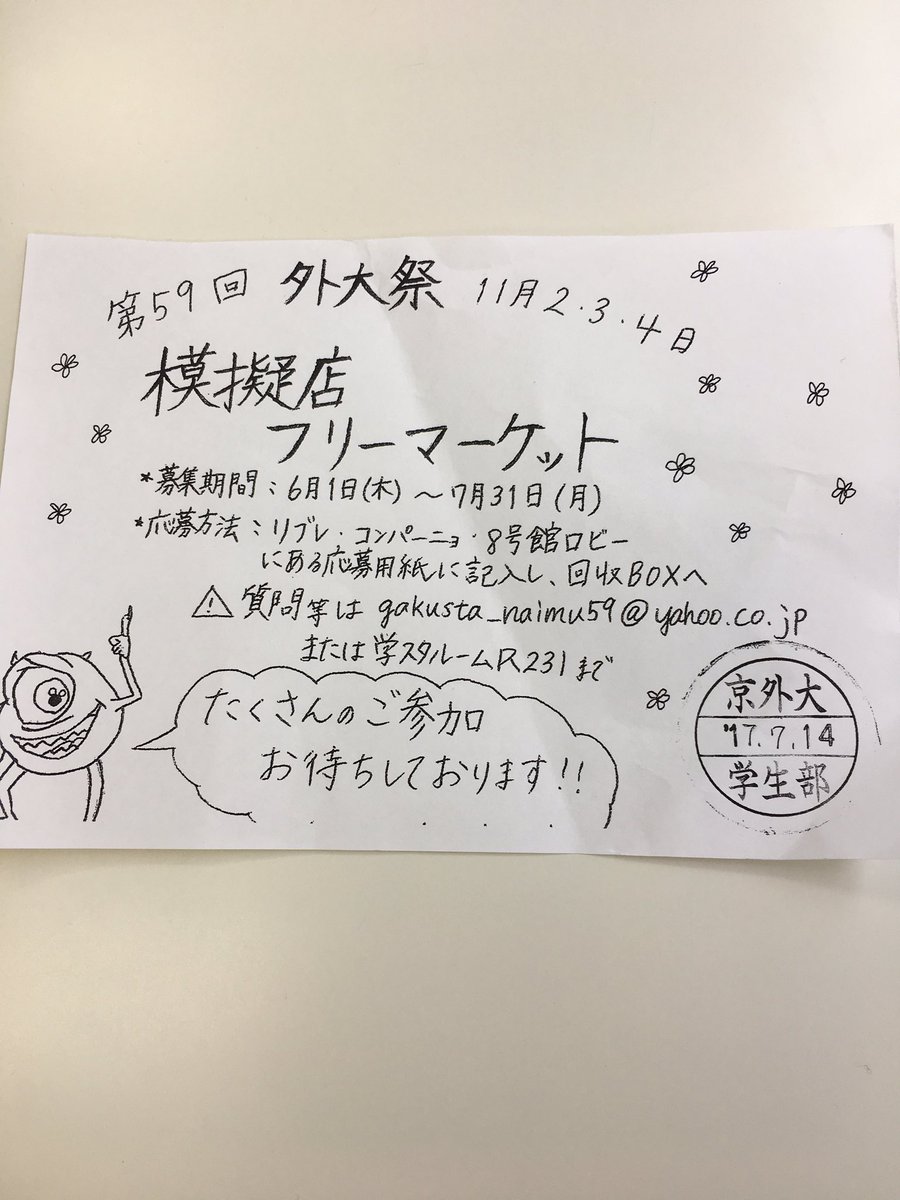 第59回 外大祭 11月2・3・4日
模擬店
フリーマーケット
*募集期間：6月1日(木)～7月31日(月)
*応募方法：リブレ・コンパーニョ・8号館ロビー
にある応募用紙に記入し、回収BOXへ
⚠ 質問等は gakusta_naimu59@yahoo.co.jp
または学スタルームR231まで
たくさんのご参加
お待ちしております!!
京外大
'17.7.14
学生部